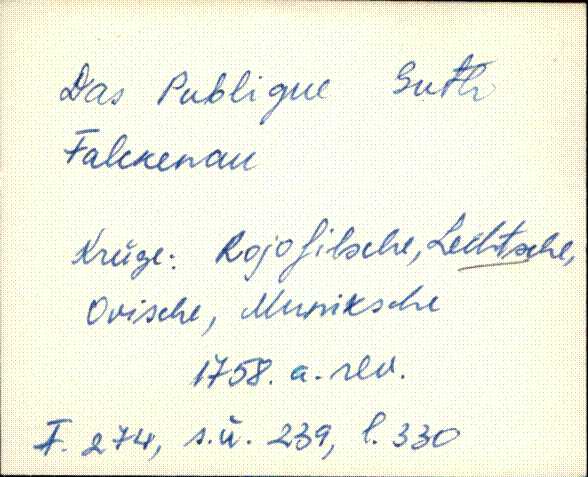 Das Publique Guth
Falckenau
Krüge: Rojofilsche, Lechtsche,
Orische, Muniksche
1758. a. rev.
F. 274, s.ü. 239, l. 330